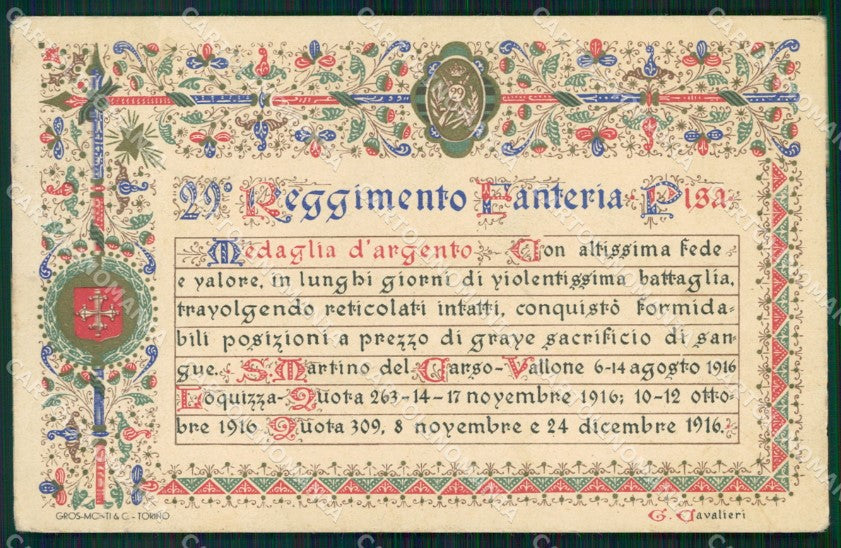 29
29º Reggimento Fanteria Pisa
Medaglia d'argento Con altissima fede
e valore, in lunghi giorni di violentissima battaglia,
travolgendo reticolati intatti, conquistò formida-
bili posizioni a prezzo di grave sacrificio di san-
gue. S. Martino del Carso-Vallone 6-14 agosto 1916
Loquizza-Quota 263-14-17 novembre 1916; 10-12 otto-
bre 1916 Quota 309, 8 novembre e 24 dicembre 1916.
GROS-MONTI & C. - TORINO
G. Cavalieri
CARTOLINOMANIA